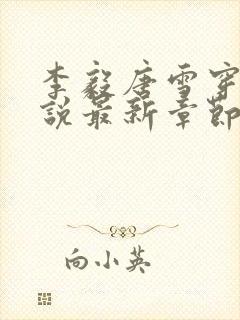 李毅唐雪穿
说最新章节
向小英